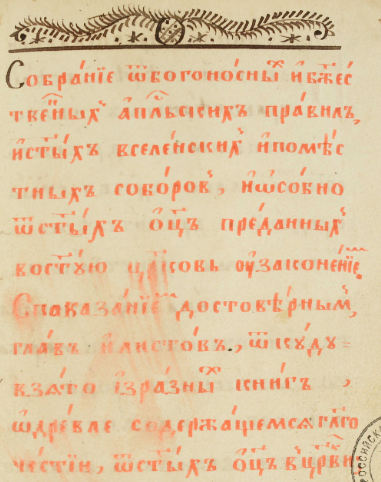 Собра́нїе ѿбогоно́сны̾ ибж҃ес
тве́нныⷯ а҆пⷭ҇льскихъ пра́вилъ,
и҆ст҃ы́хъ вселе́нскиⷯ и҆помѣ́с
тныхъ собо́ровъ, и҆ѡсо́бно
ѿст҃ы́хъ ѻ҆ц҃ъ пре́данныхъ
восту҃ю цр҃ковь ѹ҆зако́ненїе.
Спаказа́нїемъ досто́вѣрнымъ,
гла́въ и҆листо́въ, ѿкуду-
кзѧ́то и҆зра́зныⷯ кни́гъ,
ѡ҆дре́вле содержа́щемсѧ бл҃го
че́стїи, ѿст҃ы́хъ ѻ҆ц҃ъ вцр҃кви
РОССИЙСКА